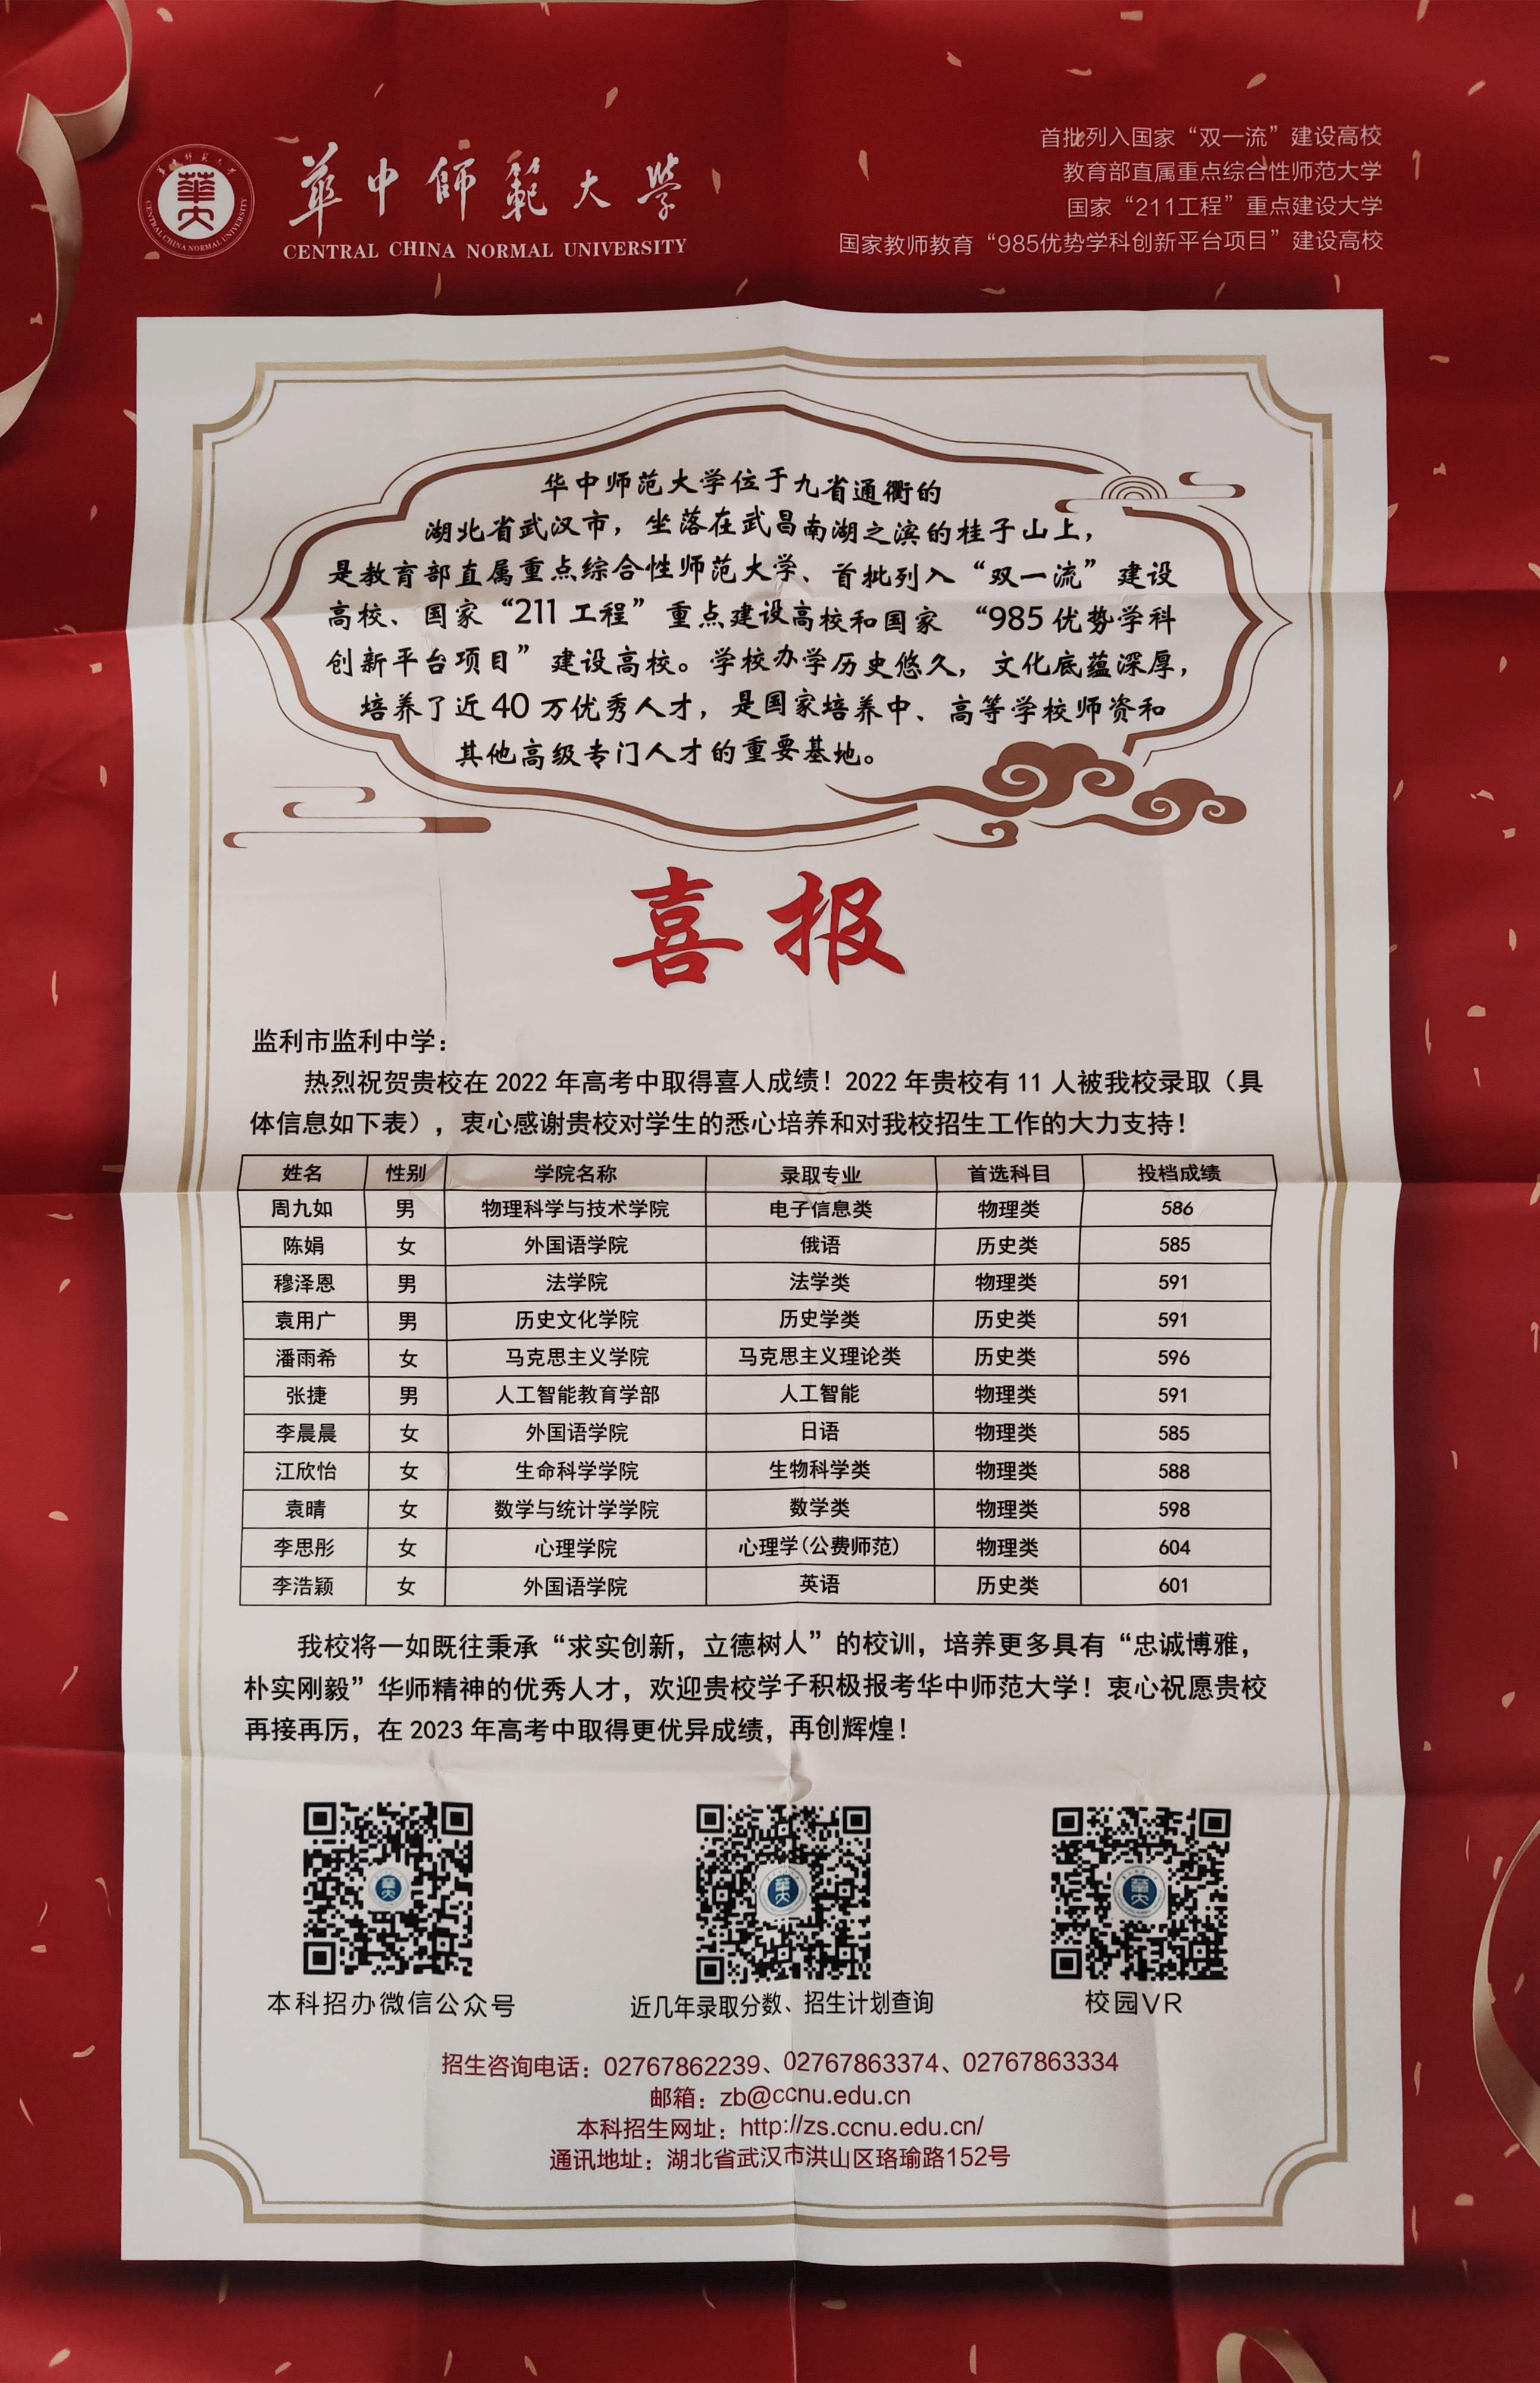 華中師範大學
CENTRAL CHINA NORMAL UNIVERSITY
首批列入国家“双一流”建设高校
教育部直属重点综合性师范大学
国家“211工程”重点建设大学
国家教师教育“985优势学科创新平台项目”建设高校
华中师范大学位于九省通衢的
湖北省武汉市，坐落在武昌南湖之滨的桂子山上，
是教育部直属重点综合性师范大学、首批列入“双一流”建设
高校、国家“211工程”重点建设高校和国家“985优势学科
创新平台项目”建设高校。学校办学历史悠久，文化底蕴深厚，
培养了近40万优秀人才，是国家培养中、高等学校师资和
其他高级专门人才的重要基地。
喜报
监利市监利中学：
热烈祝贺贵校在2022年高考中取得喜人成绩！2022年贵校有11人被我校录取（具
体信息如下表），衷心感谢贵校对学生的悉心培养和对我校招生工作的大力支持！
姓名 性别 学院名称 录取专业 首选科目 投档成绩
周九如 男 物理科学与技术学院 电子信息类 物理类 586
陈娟 女 外国语学院 俄语 历史类 585
穆泽恩 男 法学院 法学类 物理类 591
袁用广 男 历史文化学院 历史学类 历史类 591
潘雨希 女 马克思主义学院 马克思主义理论类 历史类 596
张捷 男 人工智能教育学部 人工智能 物理类 591
李晨晨 女 外国语学院 日语 物理类 585
江欣怡 女 生命科学学院 生物科学类 物理类 588
袁晴 女 数学与统计学学院 数学类 物理类 598
李思彤 女 心理学院 心理学(公费师范) 物理类 604
李浩颖 女 外国语学院 英语 历史类 601
我校将一如既往秉承“求实创新，立德树人”的校训，培养更多具有“忠诚博雅，
朴实刚毅”华师精神的优秀人才，欢迎贵校学子积极报考华中师范大学！衷心祝愿贵校
再接再厉，在2023年高考中取得更优异成绩，再创辉煌！
本科招办微信公众号
近几年录取分数、招生计划查询
校园VR
招生咨询电话：02767862239、02767863374、02767863334
邮箱：zb@ccnu.edu.cn
本科招生网址：http://zs.ccnu.edu.cn/
通讯地址：湖北省武汉市洪山区珞瑜路152号